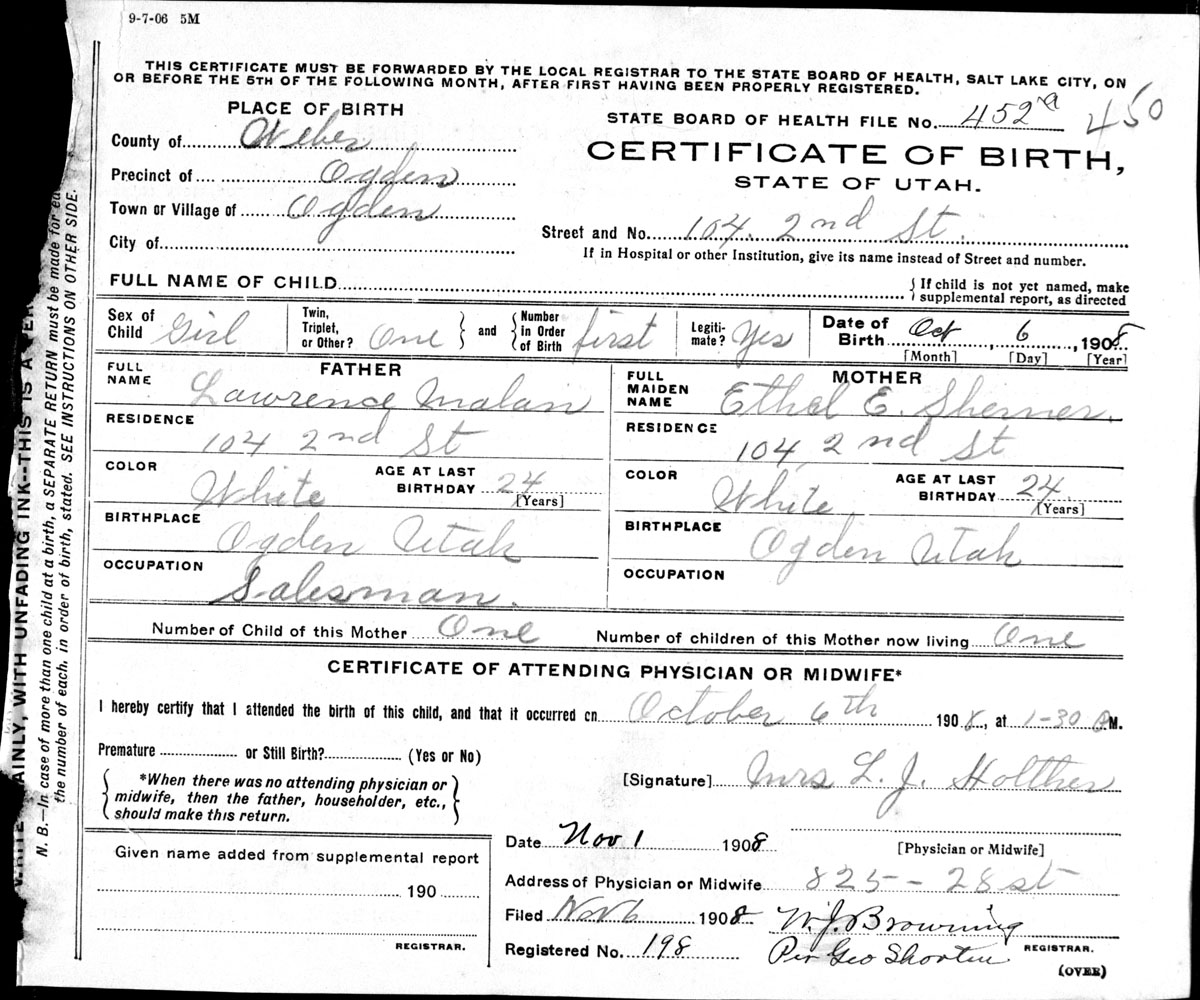 9-7-06 5M
THIS CERTIFICATE MUST BE FORWARDED BY THE LOCAL REGISTRAR TO THE STATE BOARD OF HEALTH, SALT LAKE CITY, ON
OR BEFORE THE 5TH OF THE FOLLOWING MONTH, AFTER FIRST HAVING BEEN PROPERLY REGISTERED.
PLACE OF BIRTH
STATE BOARD OF HEALTH FILE No. 452a 450
County of Weber
CERTIFICATE OF BIRTH,
Precinct of Ogden
STATE OF UTAH.
Town or Village of Ogden
Street and No. 104. 2nd St.
City of
If in Hospital or other Institution, give its name instead of Street and number.
FULL NAME OF CHILD
{ If child is not yet named, make
supplemental report, as directed
Sex of Child Girl Twin, Triplet, or Other? One } and { Number in Order of Birth first Legiti-mate? Yes Date of Birth Oct, 6, 1908
[Month] [Day] [Year]
FATHER
FULL NAME Lawrence Malan
RESIDENCE
104 2nd St
COLOR White AGE AT LAST BIRTHDAY 24
[Years]
BIRTHPLACE
Ogden Utah
OCCUPATION
Salesman.
MOTHER
FULL MAIDEN NAME Ethel E.
RESIDENCE
104 2nd St
COLOR White AGE AT LAST BIRTHDAY 24
[Years]
BIRTHPLACE
Ogden Utah
OCCUPATION
Number of Child of this Mother One Number of children of this Mother now living One
CERTIFICATE OF ATTENDING PHYSICIAN OR MIDWIFE*
I hereby certify that I attended the birth of this child, and that it occurred on October 6th 1908, at 1-30 M.
Premature or Still Birth? (Yes or No)
{ *When there was no attending physician or
midwife, then the father, householder, etc.,
should make this return. }
[Signature] Mrs L. J. Holther
Date Nov 1 1908
[Physician or Midwife]
Given name added from supplemental report
190
REGISTRAR.
Address of Physician or Midwife 825 - 28 st
Filed Nov 6 1908 W. J. Browning
Registered No. 198 Per Geo Shorten REGISTRAR.
(OVER)
AINLY, WITH UNFADING INK--THIS IS A
N. B.—In case of more than one child at a birth, a SEPARATE RETURN must be made for
the number of each. in order of birth, stated. SEE INSTRUCTIONS ON OTHER SIDE.